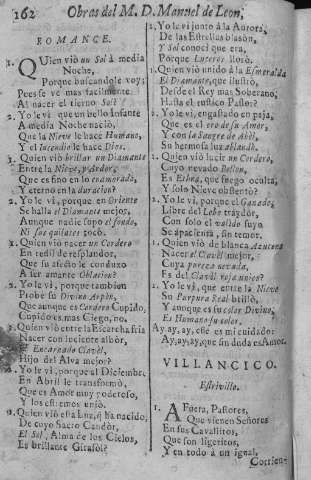 162 Obras del M. D. Manuel de Leon,
ROMANCE.
1. Quien viò un Sol à media
Noche,
Porque buscandole voy;
Pues se vè mas facilmente
Al nacer el tierno Sol?
2. Yo le vi, que un bello Infante
A media Noche nació,
Que la Nieve lo hace Humano,
Y el Incendio le hace Dios.
1. Quien viò brillar un Diamante
Entre la Nieve,
Que es fino en lo enamorado,
Y eterno en la duracion?
2. Yo le vi, porque en Oriente
Se halla el Diamante mejor,
Aunque nadie supo el fondo,
Ni los quilates tocò.
1. Quien viò nacer un Cordero
En redil de resplandor,
Que su afecto le conduxo
A ser amante Oblacion?
2. Yo le vi, porque tambien
Probè su Divino Arpòn,
Que aunque es Cordero Cupido,
Cupido es mas Ciego, no.
1. Quien viò entre la Escarcha fria
Nacer con luciente albòr,
El Encarnado Clavèl,
Hijo del Alva mejor?
2. Yo le vi, porque al Diciembre,
En Abril le transformò,
Que es Amor muy poderoso,
Y los estremos uniò.
1. Quien viò esta Luz, si ha nacido,
De cuyo Sacro Candòr,
El Sol, Alma de los Cielos,
Es brillante Girasòl?
2. Yo le vi junto à la Aurora,
De las Estrellas blasòn,
Y Sol conocì que era,
Porque Luceros llorò.
1. Quien viò unido à la Esmeralda
El Diamante, que ilustrò,
Desde el Rey mas Soberano,
Hasta el rustico Pastor?
2. Yo le vi, engastado en paja,
Que es el oro de su Amor,
Y con la Sangre de Abèl,
Su hermosa luz ablandò.
1. Quien viò lucir un Cordero,
Cuyo nevado Bellon,
Es Ethna, que fuego oculta,
Y solo Nieve obstentò?
2. Yo le vi, porque el Ganado,
Libre del Lobo traydòr,
Con solo el valido suyo
Se apacienta, sin temor.
1. Quien viò de blanca Azuzena
Nacer el Clavèl mejor,
Cuya pureza nevada,
Es del Clavèl roja unico?
2. Yo le vi, que entre la Nieve
Su Purpura Real brillò,
Y aunque es su color Divino,
Es Humano su color.
Ay, ay, ay, esse es mi cuidado:
Ay, ay, ay, que sin duda es Amor.
VILLANCICO.
Estrivillo.
1. Afuera, Pastores,
Que vienen Señores
En sus Cavallitos,
Que son ligeritos,
Y en todo à un igual,
Corrien-